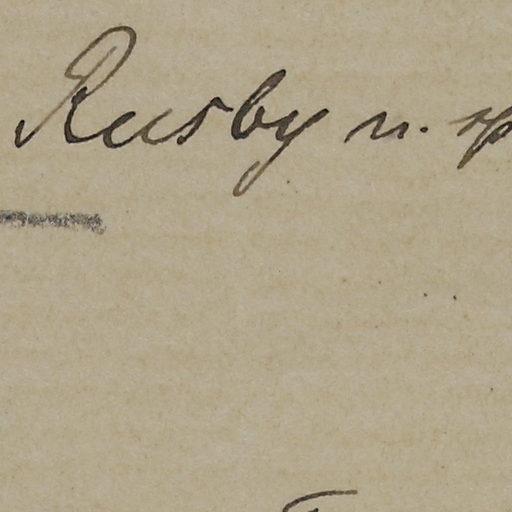 Rusby n. sp